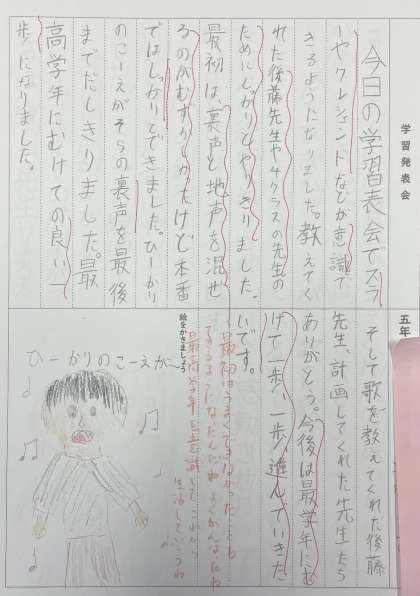 学習発表会
今日の学習発表会でスラ
ーやクレシェンドなどが意識で
きるようになりました。教えてく
れた後藤先生や4クラスの先生の
ためにしっかりとやりきりました。
最初は、裏声と地声を混ぜ
るのがむずかしかったけど本番
ではしっかりとできました。ひーかり
のこーえがそらの裏声を最後
までだしきりました。最
高学年にむけての良い一
歩になりました。
五年
そして歌を教えてくれた後藤
先生、計画してくれた先生たち
ありがとう。今後は最高学年にむ
けて一歩、一歩、進んでいきた
いです。
最初はうまくできなかったことも
できるようになったんだね。がんばったね
最高学年を意識してこれから
生活していこうね
絵をかきましょう
ひーかりのこーえがー